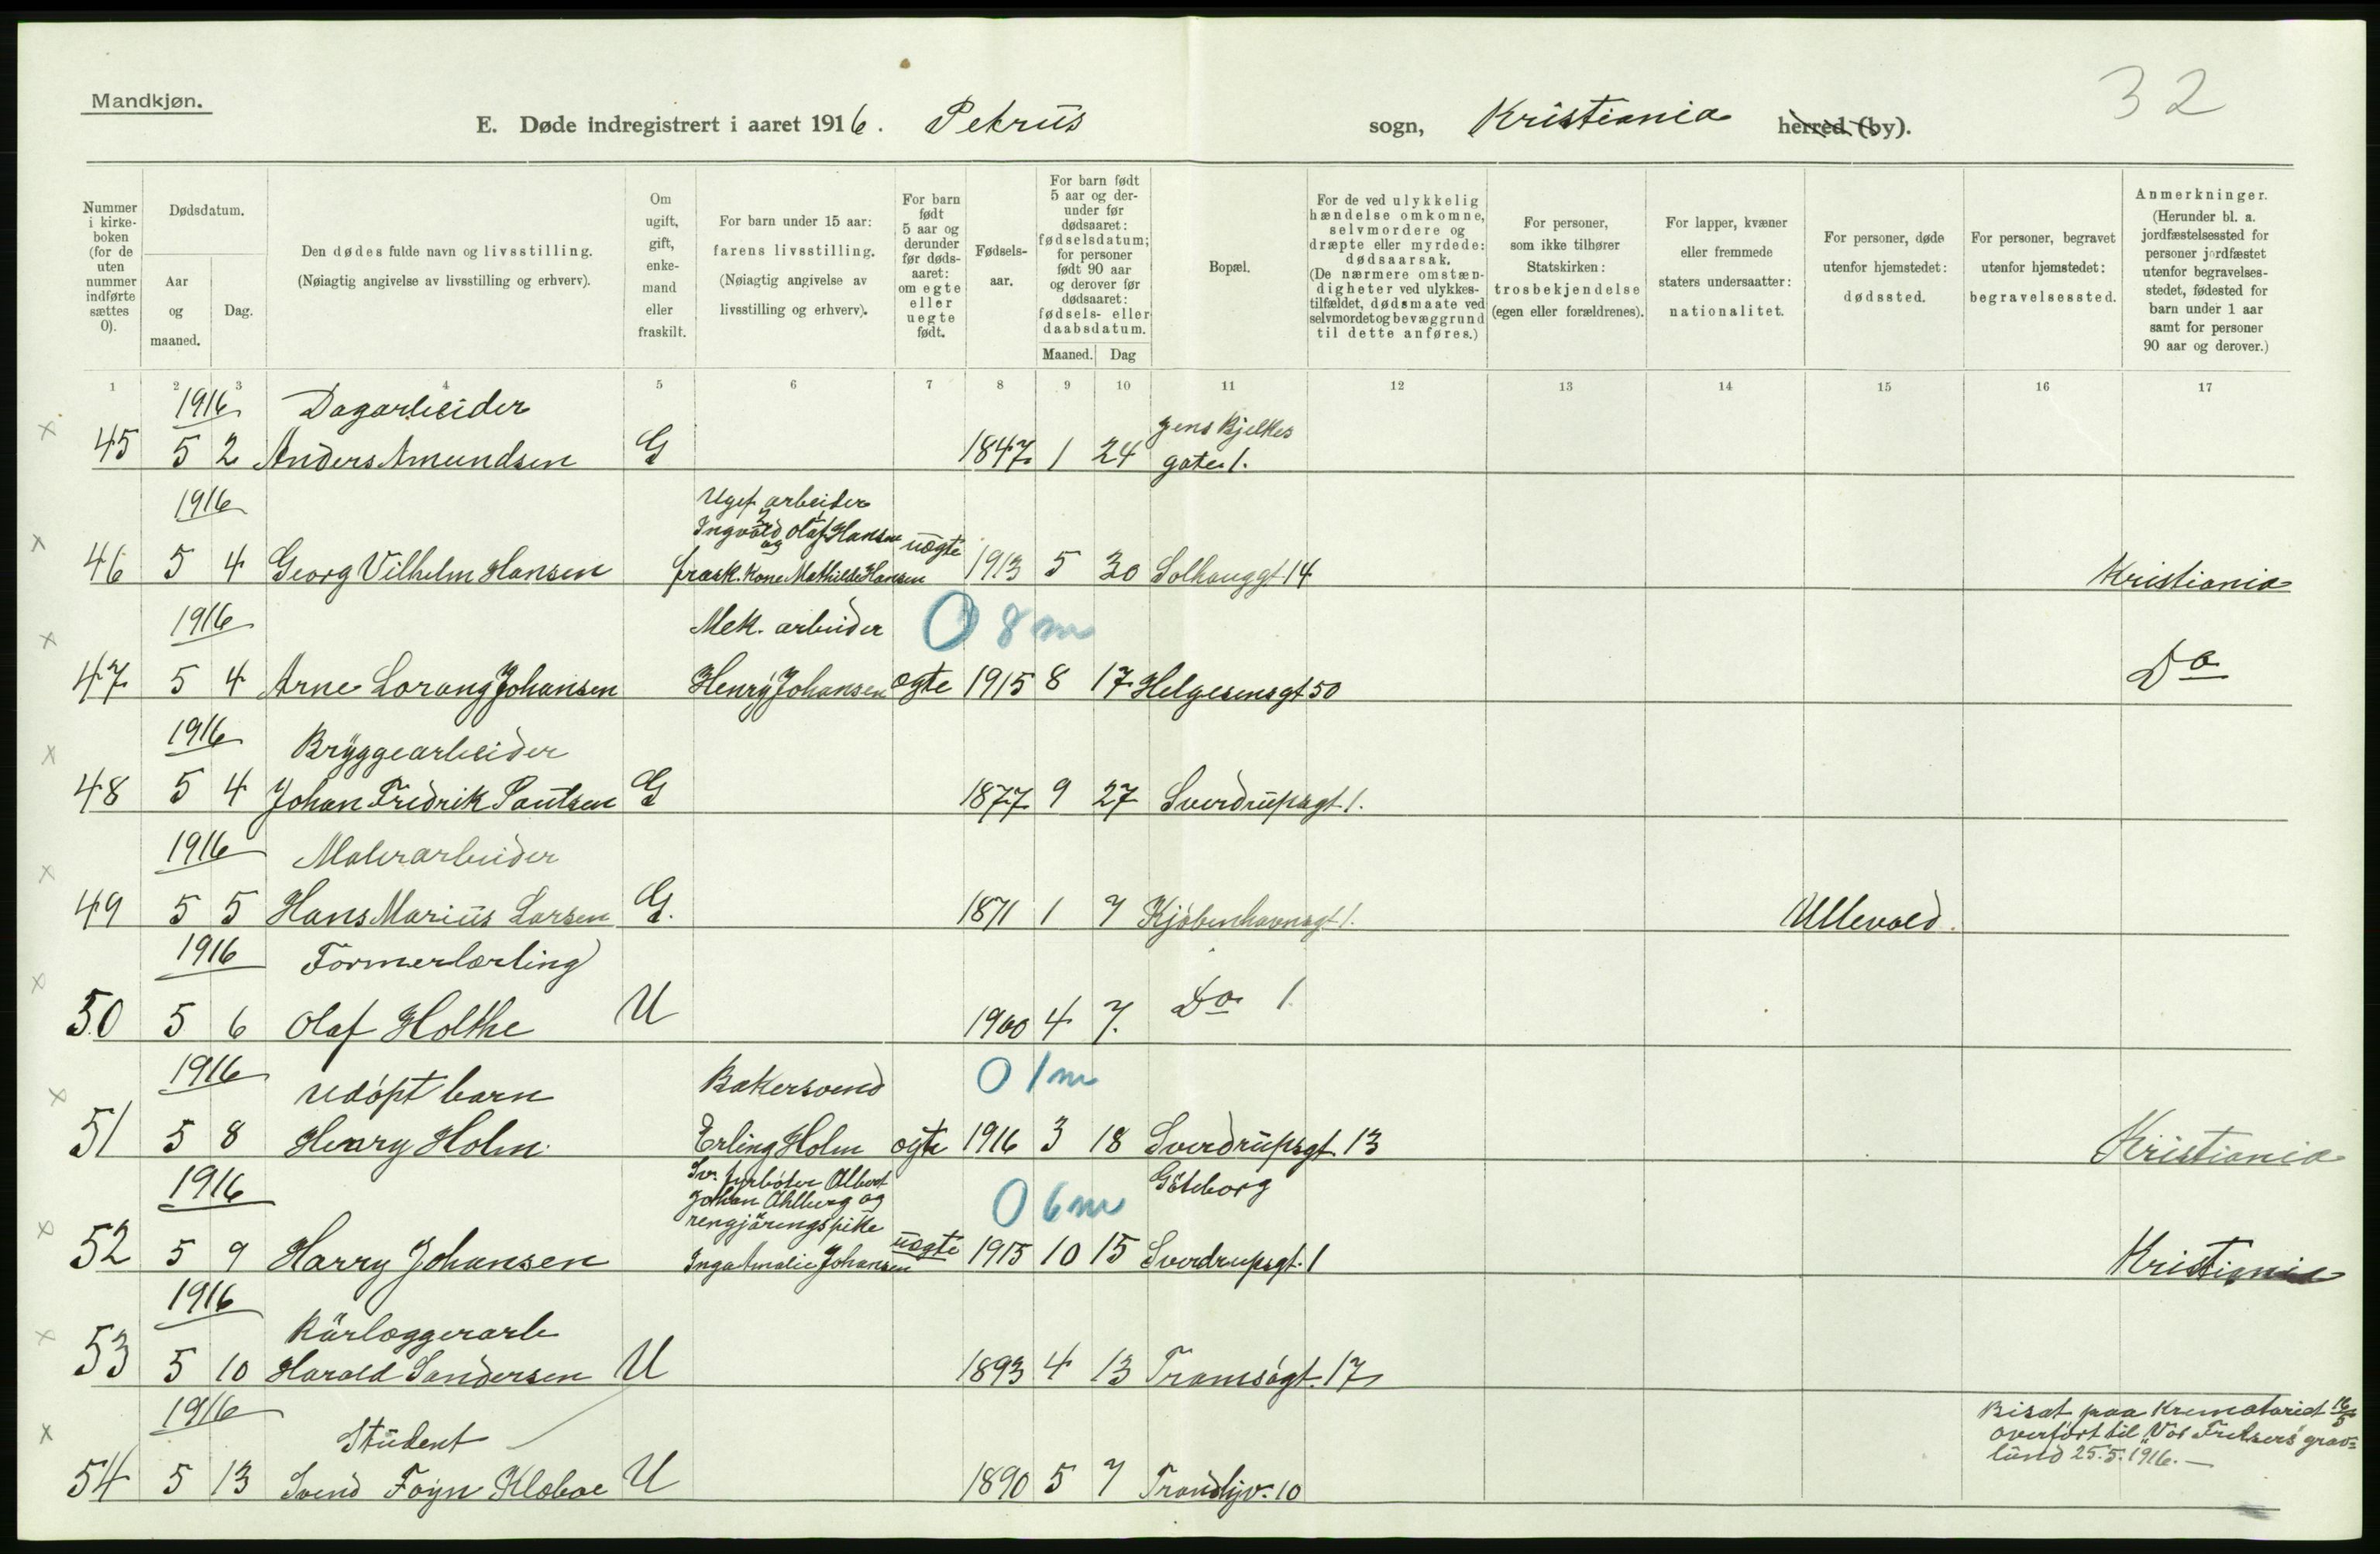 Mandkjøn.
32
E. Døde indregistrert i aaret 1916. Petrus sogn, Kristiania herred (by).
Nummer i kirke-boken (for de uten nummer indførte sættes 0).
Dødsdatum.
Aar og maaned.
Dag.
Den dødes fulde navn og livsstilling.
(Nøiagtig angivelse av livsstilling og erhverv).
Om ugift, gift, enke-mand eller fraskilt.
For barn under 15 aar: farens livsstilling.
(Nøiagtig angivelse av livsstilling og erhverv).
For barn født 5 aar og derunder før døds-aaret: om egte eller uegte født.
Fødsels-aar.
For barn født 5 aar og der-under før dødsaaret: fødselsdatum; for personer født 90 aar og derover før dødsaaret: fødsels- eller daabsdatum.
Maaned.
Dag
Bopæl.
For de ved ulykkelig hændelse omkomne, selvmordere og dræpte eller myrdede: dødsaarsak.
(De nærmere omstæn-digheter ved ulykkes-tilfældet, dødsmaate ved selvmord og bevæggrund til dette anføres.)
For personer, som ikke tilhører Statskirken: trosbekjendelse (egen eller forældrenes).
For lapper, kvæner eller fremmede staters undersaatter: nationalitet.
For personer, døde utenfor hjemstedet: dødssted.
For personer, begravet utenfor hjemstedet: begravelsessted.
Anmerkninger.
(Herunder bl. a. jordfæstelsessted for personer jordfæstet utenfor begravelses-stedet, fødested for barn under 1 aar samt for personer 90 aar og derover.)
1 2 3 4 5 6 7 8 9 10 11 12 13 14 15 16 17
1916 Dagarbeider Jens Bjelkes
x 45 5 2 Anders Amundsen G 1847 1 24 gate 1.
1916 Ugif. arbeider
Ingvald Olaf Hansen
og uægte
x 46 5 4 Georg Vilhelm Hansen frask. Kone Mathilde Hansen 1913 5 30 Solhauggt. 14 Kristiania
1916 Mek. arbeider 0 8 m
x 47 5 4 Arne Lorang Johansen Henry Johansen ægte 1915 8 17 Helgesensgt 50 Do
1916 Bryggearbeider
x 48 5 4 Johan Fredrik Paulsen G 1877 9 27 Sverdrupsgt. 1.
1916 Malerarbeider
x 49 5 5 Hans Marius Larsen G. 1871 1 7 Kjøbenhavnsgt 1. Ullevold.
1916 Formerlærling
x 50 5 6 Olaf Holthe U 1900 4 7. Do 1.
1916 Udøpt barn Bakersvend 0 1 m
x 51 5 8 Henry Holm. Erling Holm ægte 1916 3 18 Sverdrupsgt. 13 Kristiania
1916 Sv. fyrbøter Albert Göteborg
Johan Ahlberg og 0 6 m
rengjøringspike
x 52 5 9 Harry Johansen Inga Amalie Johansen uægte 1915 10 15 Sverdrupsgt. 1 Kristiania
1916 Rörlæggerarb
x 53 5 10 Harald Sandersen U 1893 4 13 Tromsøgt. 17
1916 Student Bisat paa Krematoriet 16/5
overført til Vor Frelsers grav=
lund 25.5.1916. —
x 54 5 13 Svend Foyn Klæboe U 1890 5 7 Trondhjv. 10